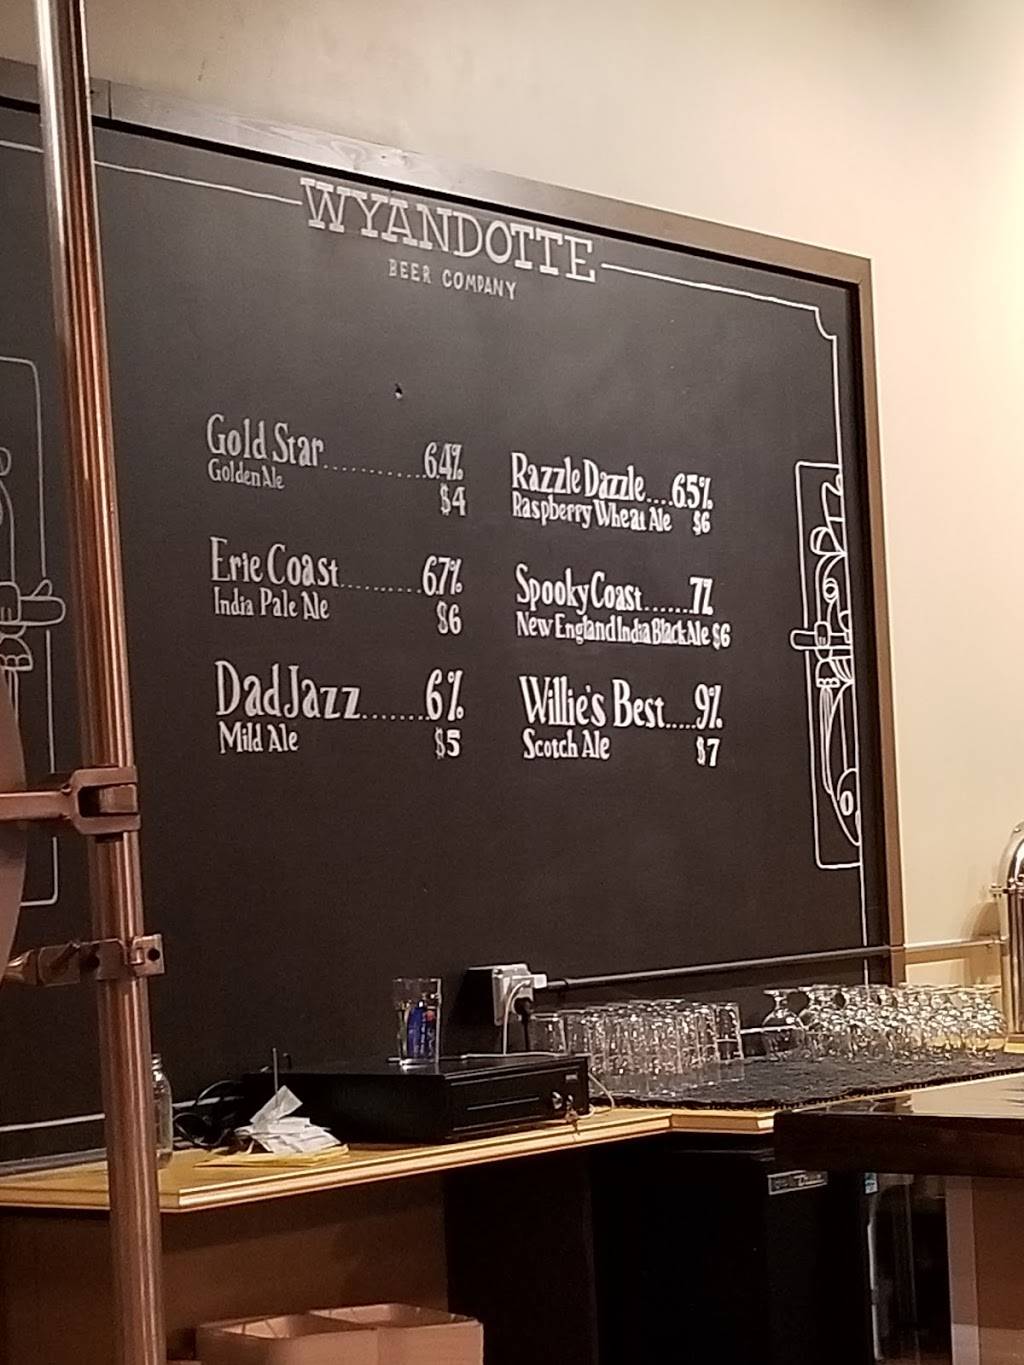 WYANDOTTE
BEER COMPANY
Gold Star..........6.4%
Golden Ale $4
Erie Coast.........6.7%
India Pale Ale $6
Dad Jazz........6%
Mild Ale $5
Razzle Dazzle....6.5%
Raspberry Wheat Ale $6
Spooky Coast.......7%
New England India Black Ale $6
Willie's Best.....9%
Scotch Ale $7